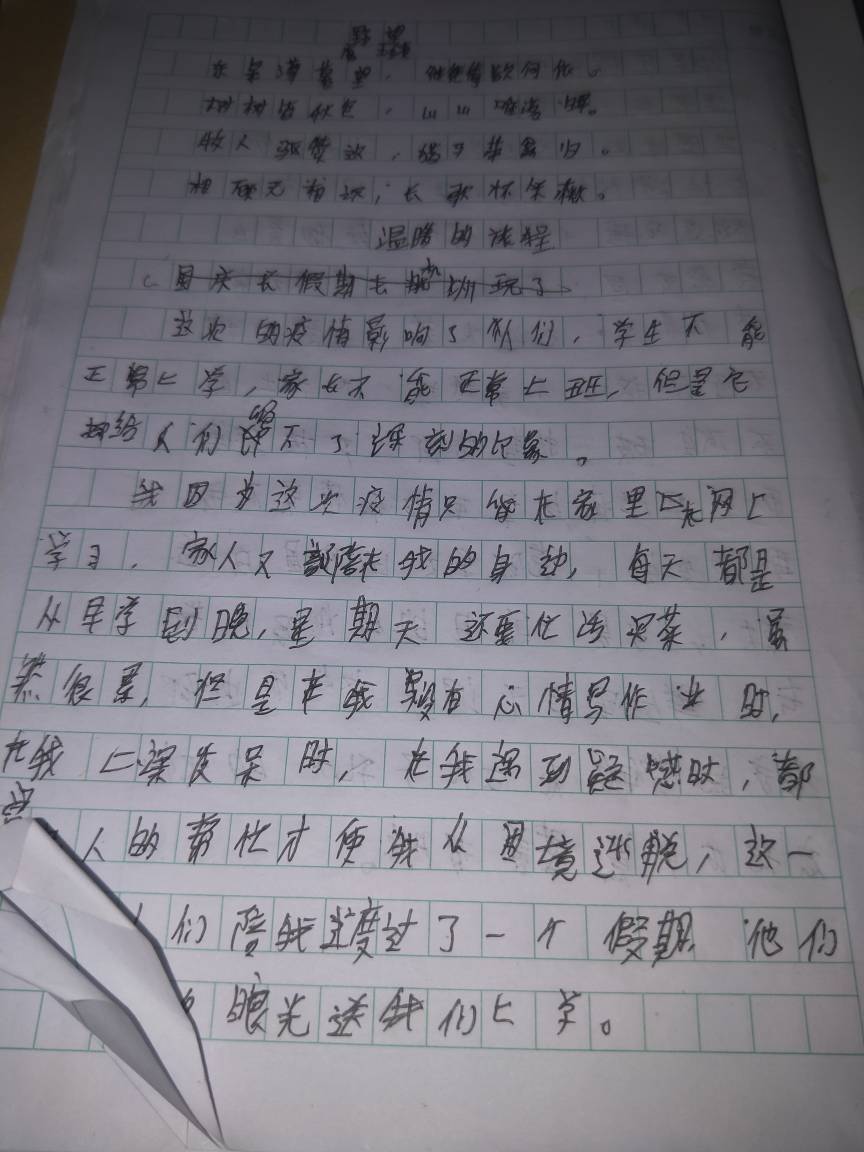 野望
东皋薄暮望，徙倚欲何依。
树树皆秋色，山山唯落晖。
牧人驱犊返，猎马带禽归。
相顾无相识，长歌怀采薇。
温暖的旅程
国庆长假期去 玩了
这次的疫情影响了我们，学生不能
正常上学，家长不能正常上班，但是它
却给人们留下了深刻的印象。
我因为这次疫情只能在家里上网上
学习，家人又都陪在我的身边，每天都是
从早学到晚，星期天还要忙活买菜，虽
然很累，但是在我没有心情写作业时，
在我上课发呆时，在我遇到疑惑时，都
是 人的帮忙才使我从困境逃脱，这一
人们陪我度过了一个假期，他们
眼光送我们上学。